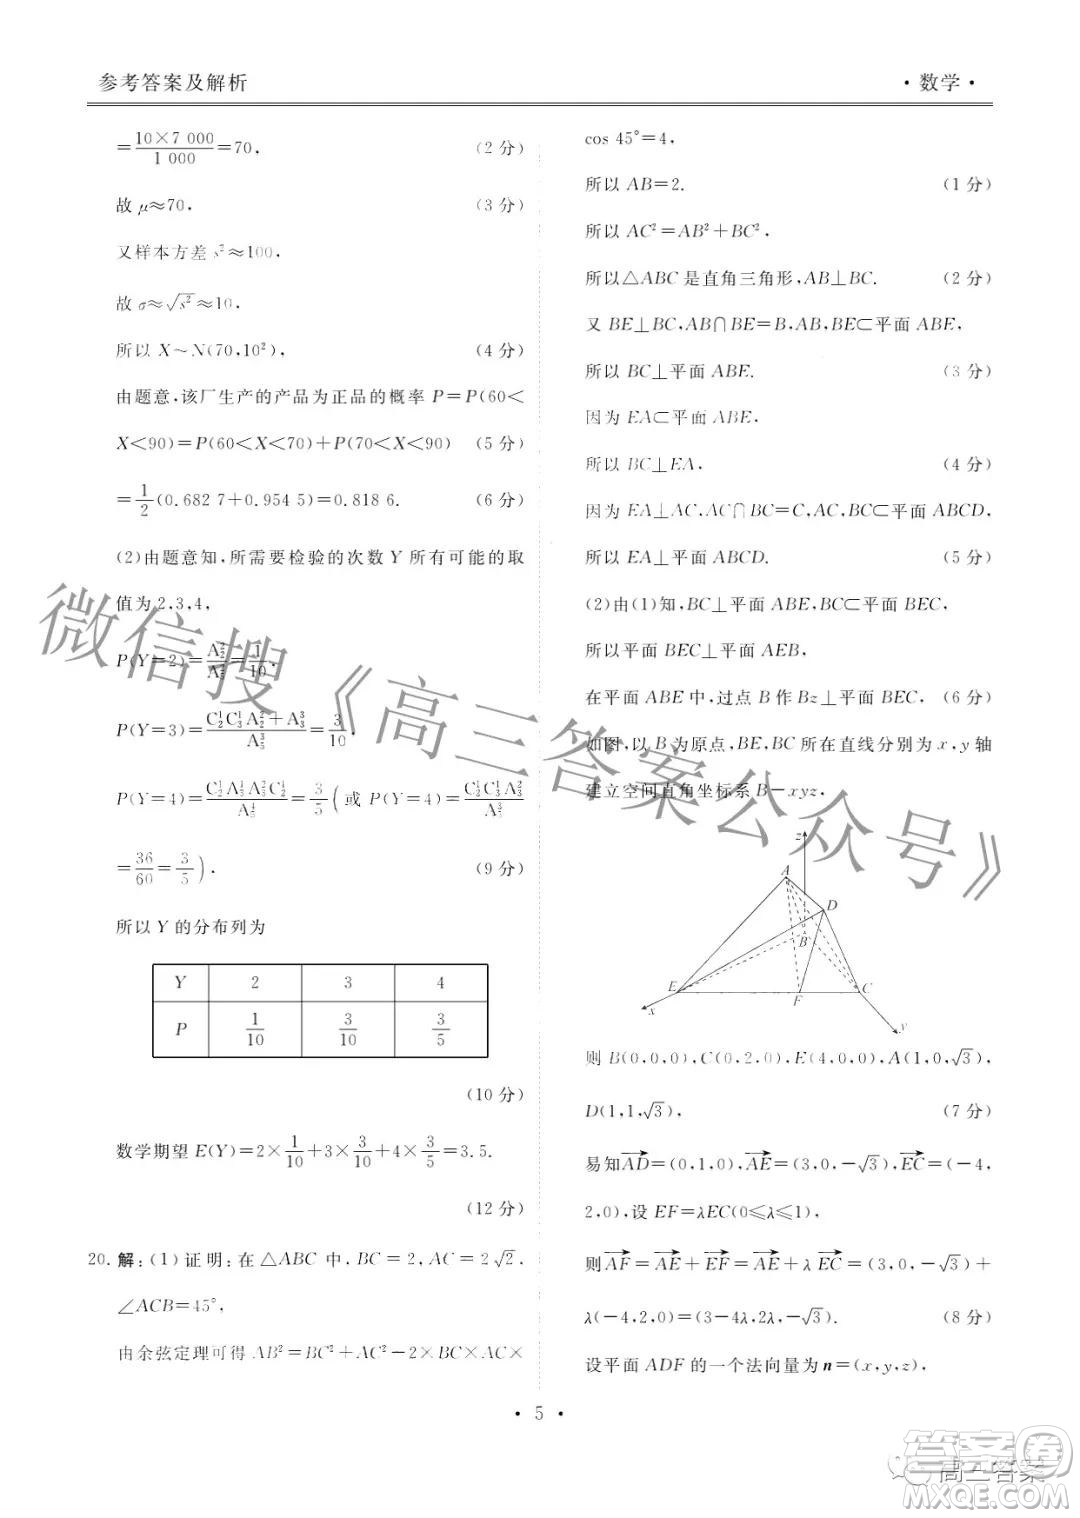 参考答案及解析
·数学·
=10×7 000/1 000=70, (2分)
故 μ≈70, (3分)
又样本方差 s²≈100,
故 σ≈√s²≈10,
所以 X~N(70,10²), (4分)
由题意,该厂生产的产品为正品的概率 P=P(60<
X<90)=P(60<X<70)+P(70<X<90) (5分)
=1/2(0.682 7+0.954 5)=0.818 6. (6分)
(2)由题意知,所需要检验的次数 Y 所有可能的取
值为2,3,4,
P(Y=2)=A₂²/A₅²=1/10,
P(Y=3)=(C₂¹C₃¹A₂²+A₃³)/A₅³=3/10,
=3/5(或 P(Y=4)=C₂¹C₃¹A₃³/A₅³
=36/60=3/5). (9分)
所以 Y 的分布列为
Y 2 3 4
P 1/10 3/10 3/5
(10分)
数学期望 E(Y)=2×1/10+3×3/10+4×3/5=3.5.
(12分)
20.解:(1)证明:在△ABC 中,BC=2,AC=2√2,
∠ACB=45°,
由余弦定理可得 AB²=BC²+AC²-2×BC×AC×
cos 45°=4,
所以 AB=2. (1分)
所以 AC²=AB²+BC²,
所以△ABC 是直角三角形,AB⊥BC. (2分)
又 BE⊥BC,AB∩BE=B,AB,BE⊂平面 ABE,
所以 BC⊥平面 ABE. (3分)
因为 EA⊂平面 ABE,
所以 BC⊥EA, (4分)
因为 EA⊥AC,AC∩BC=C,AC,BC⊂平面 ABCD,
所以 EA⊥平面 ABCD. (5分)
(2)由(1)知,BC⊥平面 ABE,BC⊂平面 BEC,
所以平面 BEC⊥平面 AEB,
在平面 ABE 中,过点 B 作 Bz⊥平面 BEC, (6分)
如图,以 B 为原点,BE,BC 所在直线分别为 x,y 轴
建立空间直角坐标系 B-xyz,
z
A
D
B
E
F
C
x
y
则 B(0,0,0),C(0,2,0),E(4,0,0),A(1,0,√3),
D(1,1,√3), (7分)
易知AD→=(0,1,0),AE→=(3,0,-√3),EC→=(-4,
2,0),设 EF=λEC(0⩽λ⩽1),
则AF→=AE→+EF→=AE→+λEC→=(3,0,-√3)+
λ(-4,2,0)=(3-4λ,2λ,-√3). (8分)
设平面 ADF 的一个法向量为 n=(x,y,z),
·5·
微信搜《高三答案公众号》
答案圈
高三答案
MXQE.COM